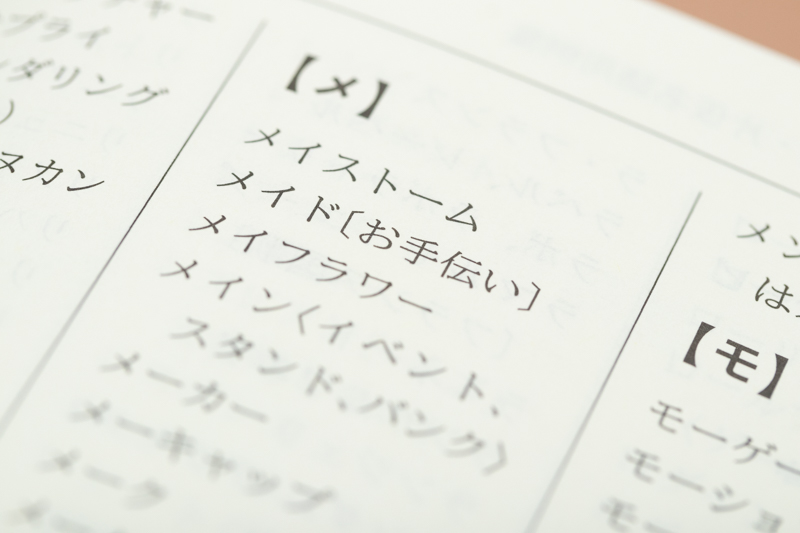 プライ
ダリング
)
ヌカン
【メ】
メイストーム
メイド〔お手伝い〕
メイフラワー
メイン〈イベント、
スタンド、バンク〉
メーカー
メーキャップ
メーク
メン
は
【モ】
モーゲー
モーショ
モー